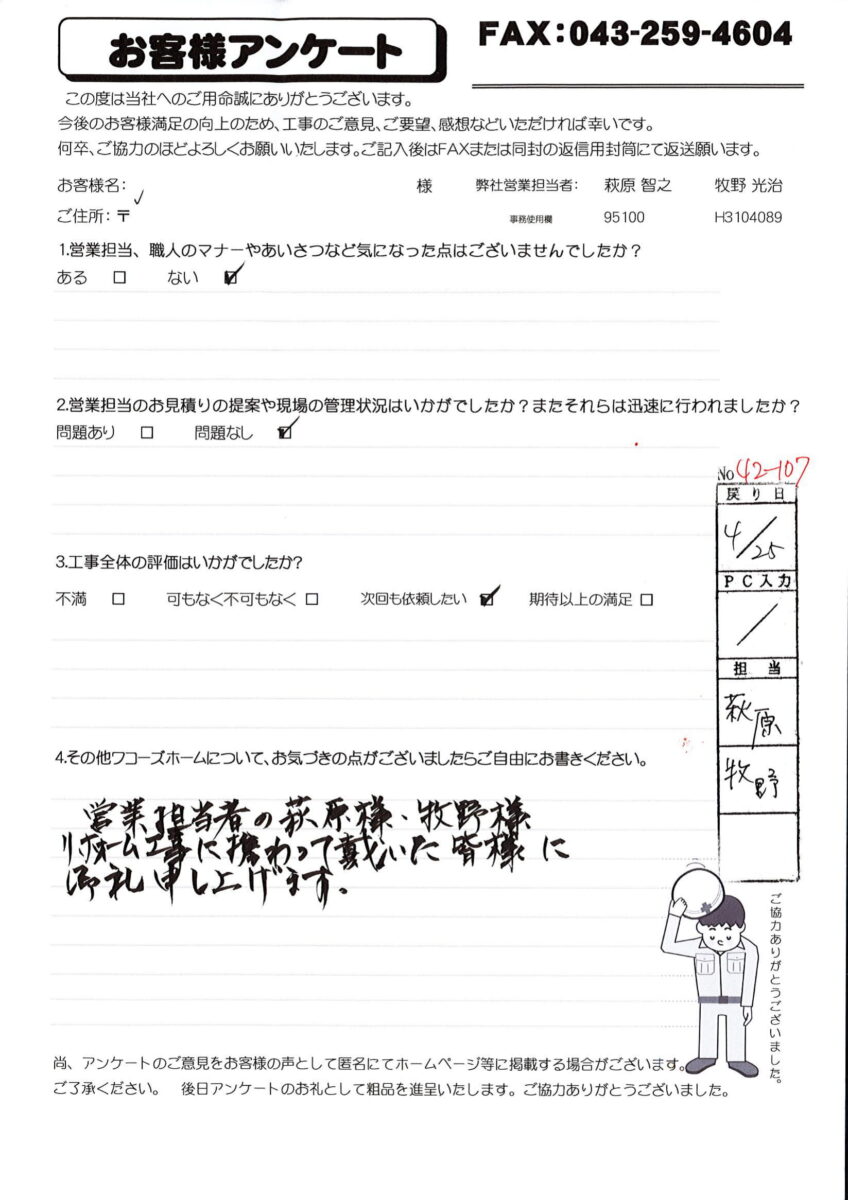 お客様アンケート
FAX:043-259-4604
この度は当社へのご用命誠にありがとうございます。
今後のお客様満足の向上のため、工事のご意見、ご要望、感想などいただければ幸いです。
何卒、ご協力のほどよろしくお願いいたします。ご記入後はFAXまたは同封の返信用封筒にて返送願います。
お客様名: 様 弊社営業担当者: 萩原 智之 牧野 光治
ご住所:〒 事務使用欄 95100 H3104089
1.営業担当、職人のマナーやあいさつなど気になった点はございませんでしたか?
ある □ ない ☑
2.営業担当のお見積りの提案や現場の管理状況はいかがでしたか?またそれらは迅速に行われましたか?
問題あり □ 問題なし ☑
No 42-107
戻り日
4/25
PC入力
/
担当
萩原
牧野
3.工事全体の評価はいかがでしたか?
不満 □ 可もなく不可もなく □ 次回も依頼したい ☑ 期待以上の満足 □
4.その他ワコーズホームについて、お気づきの点がございましたらご自由にお書きください。
営業担当者の萩原様、牧野様
リホーム工事に携わって戴いた皆様に
御礼申し上げます。
ご協力ありがとうございました。
尚、アンケートのご意見をお客様の声として匿名にてホームページ等に掲載する場合がございます。
ご了承ください。 後日アンケートのお礼として粗品を進呈いたします。ご協力ありがとうございました。